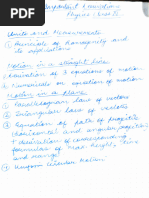 Important Questions
Physics - Unit I
Units and Measurements
① Principle of Homogeneity and
its applications
Motion in a straight line
① Derivation of 3 equations of motion
② Numericals on equation of motion
Motion in a plane
① Parallelogram law of vectors
② Triangular law of vectors
③ Equation of path of projectile
(horizontal and angular projection)
+ derivation of corresponding
formulas of max height, time
and range
④ Uniform Circular Motion